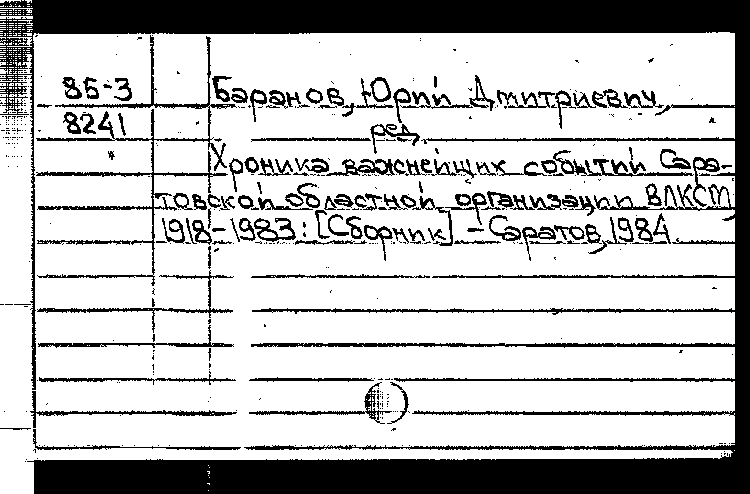 86-3 Баранов, Юрий Дмитриевич,
8241 ред.
Хроника важнейщих событий Сара-
товской областной организации ВЛКСМ,
1918-1983: [Сборник] - Саратов, 1984.